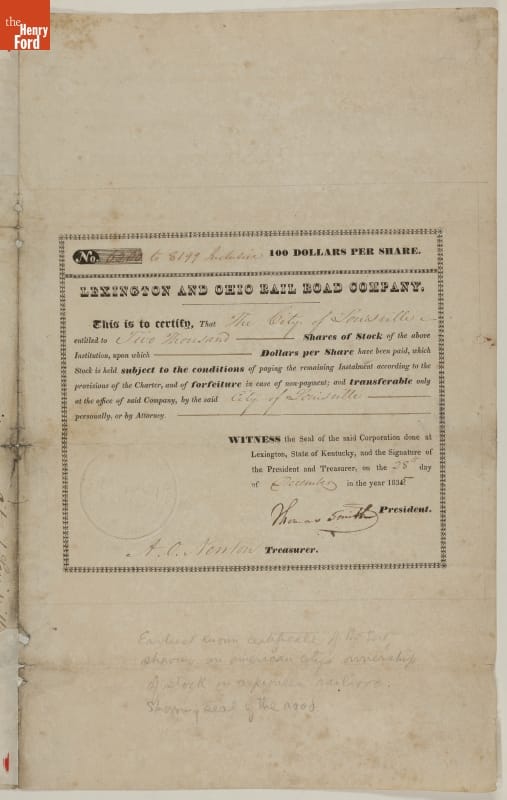 the
Henry
Ford
No. to 8199 Inclusive 100 DOLLARS PER SHARE.
LEXINGTON AND OHIO RAIL ROAD COMPANY.
This is to certify, That The City of Louisville
entitled to Two Thousand Shares of Stock of the above
Institution, upon which Dollars per Share have been paid, which
Stock is held subject to the conditions of paying the remaining Instalment according to the
provisions of the Charter, and of forfeiture in case of non-payment; and transferable only
at the office of said Company, by the said City of Louisville
personally, or by Attorney.
WITNESS the Seal of the said Corporation done at
Lexington, State of Kentucky, and the Signature of
the President and Treasurer, on the 28th day
of December in the year 1835
Thomas Smith President.
A. O. Newton Treasurer.
Earliest known certificate of
showing an american city's ownership
of stock in a pioneer railroad.
Showing seal of the road